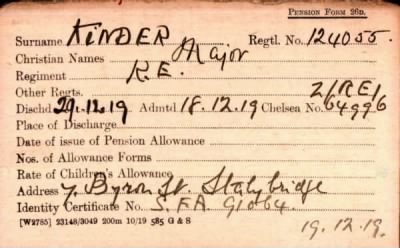 PENSION FORM 26D.
Surname KINDER Regtl. No. 124055.
Christian Names Major
Regiment R.E.
Other Regts. 21/RE/
Dischd 29.12.19 Admtd 18.12.19 Chelsea No. 64996
Place of Discharge
Date of issue of Pension Allowance
Nos. of Allowance Forms
Rate of Children's Allowance
Address 7, Byron St. Stalybridge
Identity Certificate No. S.F.A. 91064.
[W2785] 23148/3049 200m 10/19 585 G & S
19.12.19.